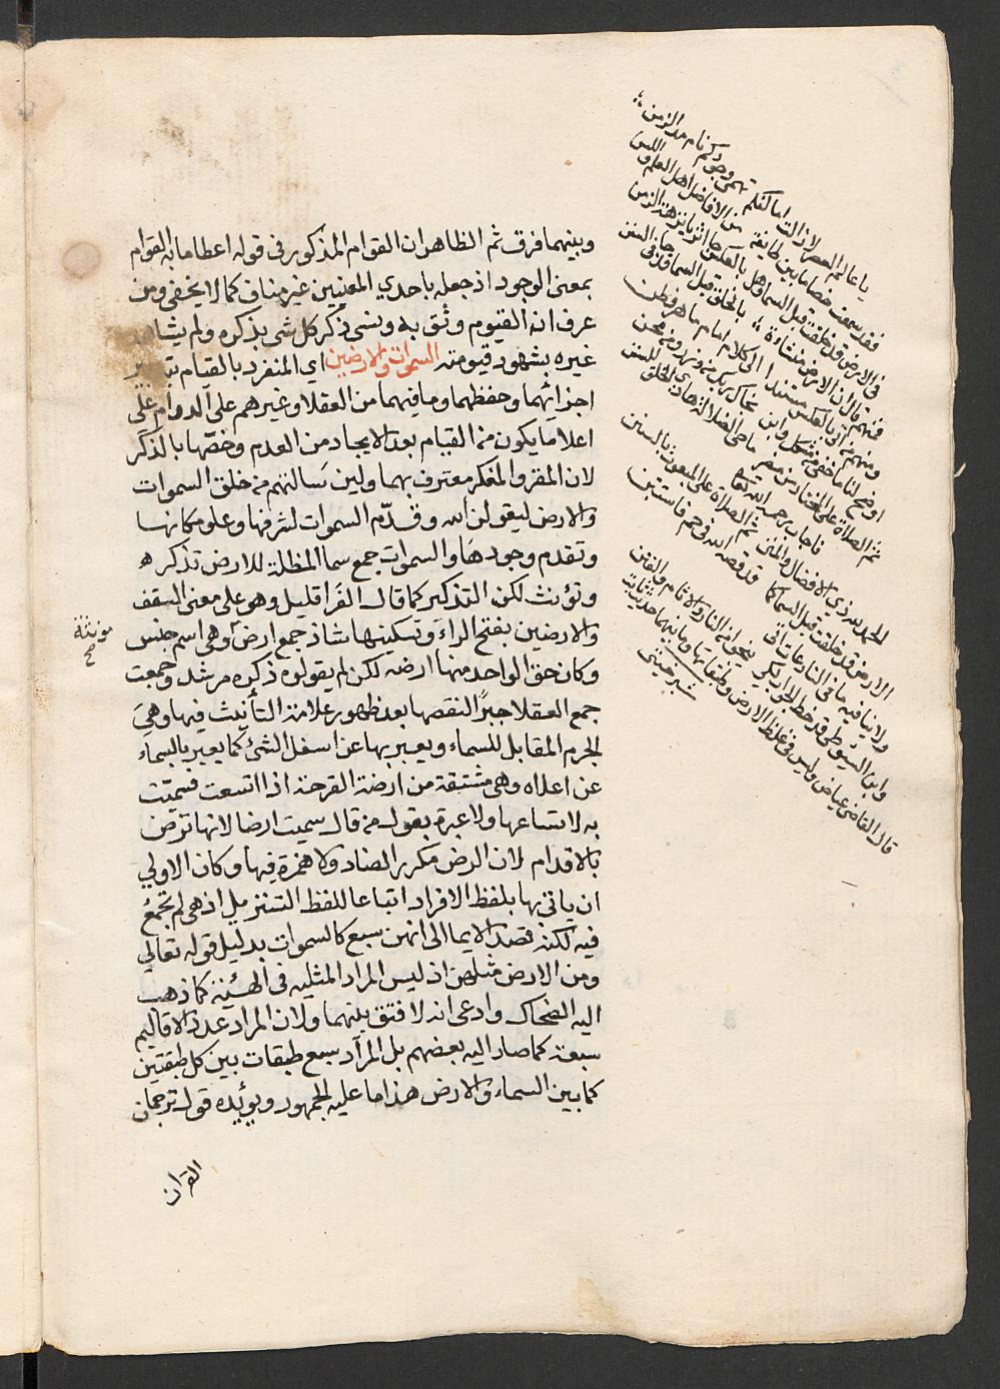 وبينهما فرق ثم الظاهر ان القوام المذكور في قوله اعطا ما به القوام
بمعنى الوجود اذ جعله باحدي المعنيين غير مناف كما لا يخفى ومن
عرف انه القيوم وثق به ونسي ذكر كل شي بذكره ولم يشاهد
غيره بشهود قيوميته السموات والارضين اي المنفرد بالقيام بتدبير
اجزائهما وحفظهما وما فيهما من العقلا وغيرهم على الدوام على
اعلا ما يكون من القيام بعد الايجاد من العدم وخصها بالذكر
لان المقر والمنكر معترف بهما ولين سالتهم من خلق السموات
والارض ليقولن الله وقدم السموات لشرفها وعلو مكانها
وتقدم وجودها والسموات جمع سما المظلة للارض تذكر
وتؤنث لكن التذكير كما قال الفرا قليل وهو على معنى السقف
والارضين بفتح الراء وتسكينها شاذ جمع ارض وهي اسم جنس
مونثة
صح
وكان حق الواحد منها ارضه لكن لم يقولوه ذكره مرشد وجمعت
جمع العقلا جبرا لنقصها بعد ظهور علامة التأنيث فيها وهي
الجرم المقابل للسماء ويعبر بها عن اسفل الشئ كما يعبر بالسماء
عن اعلاه وهي مشتقة من ارضة القرحة اذا اتسعت فسميت
به لاتساعها ولا عبرة بقول من قال سميت ارضا لانها ترض
بالاقدام لان الرض مكرر الضاد ولا همزة فيها وكان الاولي
ان ياتي بها بلفظ الافراد اتباعا للفظ التنزيل اذ هي لم تجمع
فيه لكنه قصد الايما الى انهن سبع كالسموات بدليل قوله تعالي
ومن الارض مثلهن اذ ليس المراد المثليه في الهيئة كما ذهب
اليه الضحاك وادعى انه لا فتق بينهما ولان المراد عدد الاقاليم
سبعة كما صار اليه بعضهم بل المراد سبع طبقات بين كل طبقتين
كما بين السماء والارض هذا ما عليه الجمهور ويؤيده قول ترجمان
القران
يا عالم العصر لا زالت اناملكم تهمي وجودكم نام مدا الزمن
فقد سمعت خصاما بين طايفة من الافاضل اهل العلم واللسن
في الارض قد خلقت قبل السما وهل بالعكس جا اثر يا نزهة الزمن
فمنهم قال ان الارض منشاءة بالخلق قبل السما
ومنهم من اتى بالعكس مستندا الى كلام امام ماهر فطن
اوضح لنا ما خفي من مشكل وابن
ثم الصلاة على المختار من مضر ماحي الضلالة هادي الخلق للسنن
فاجاب رحمه الله تعالى
الحمد لله ذي الافضال والمنن ثم الصلاة على المبعوث بالسنن
الارض قد خلقت قبل السما كما قد قصه الله في حم فاستبن
ولا ينافيه ما في النازعات اتى
وابن السيوطي قد خط الجواب لكي ينجو من النار والاثام والفتن
قال القاضي عياض وليس في غلظ الارض وطبقاتها وما بينهما حديث ثابت
شبرخيتي